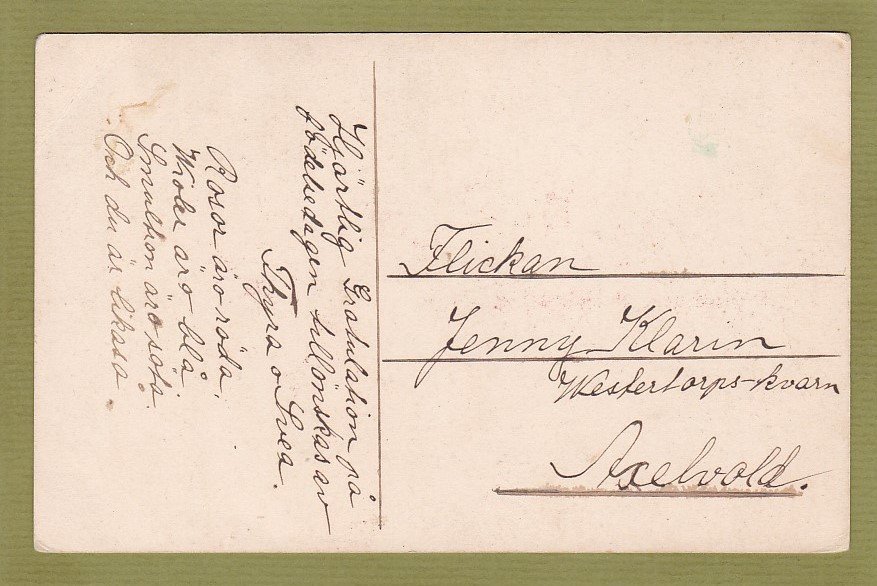 Hjärtlig Gratulation på
födelsedagen tillönskas av
Thyra o Svea.
Rosor äro röda.
Violer äro blå
Smultron äro söta.
Och du är likasa.
Flickan
Jenny Klarin
Westertorps-kvarn
Axelvold.